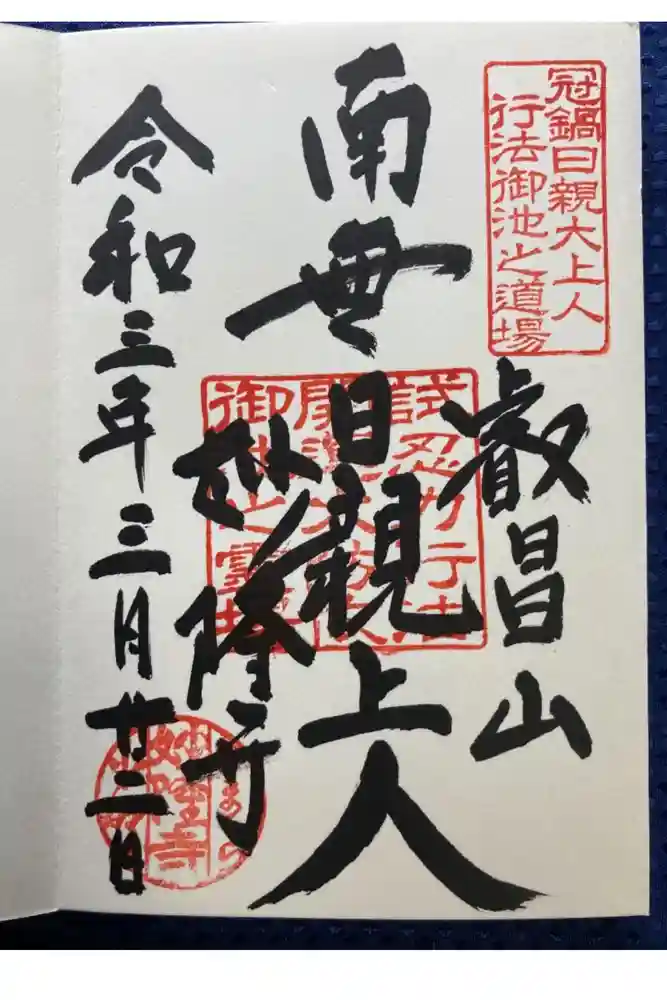 冠鍋日親大上人
行法御池之道場
叡昌山
南無日親上人
妙隆寺
令和三年三月廿二日
妙隆寺